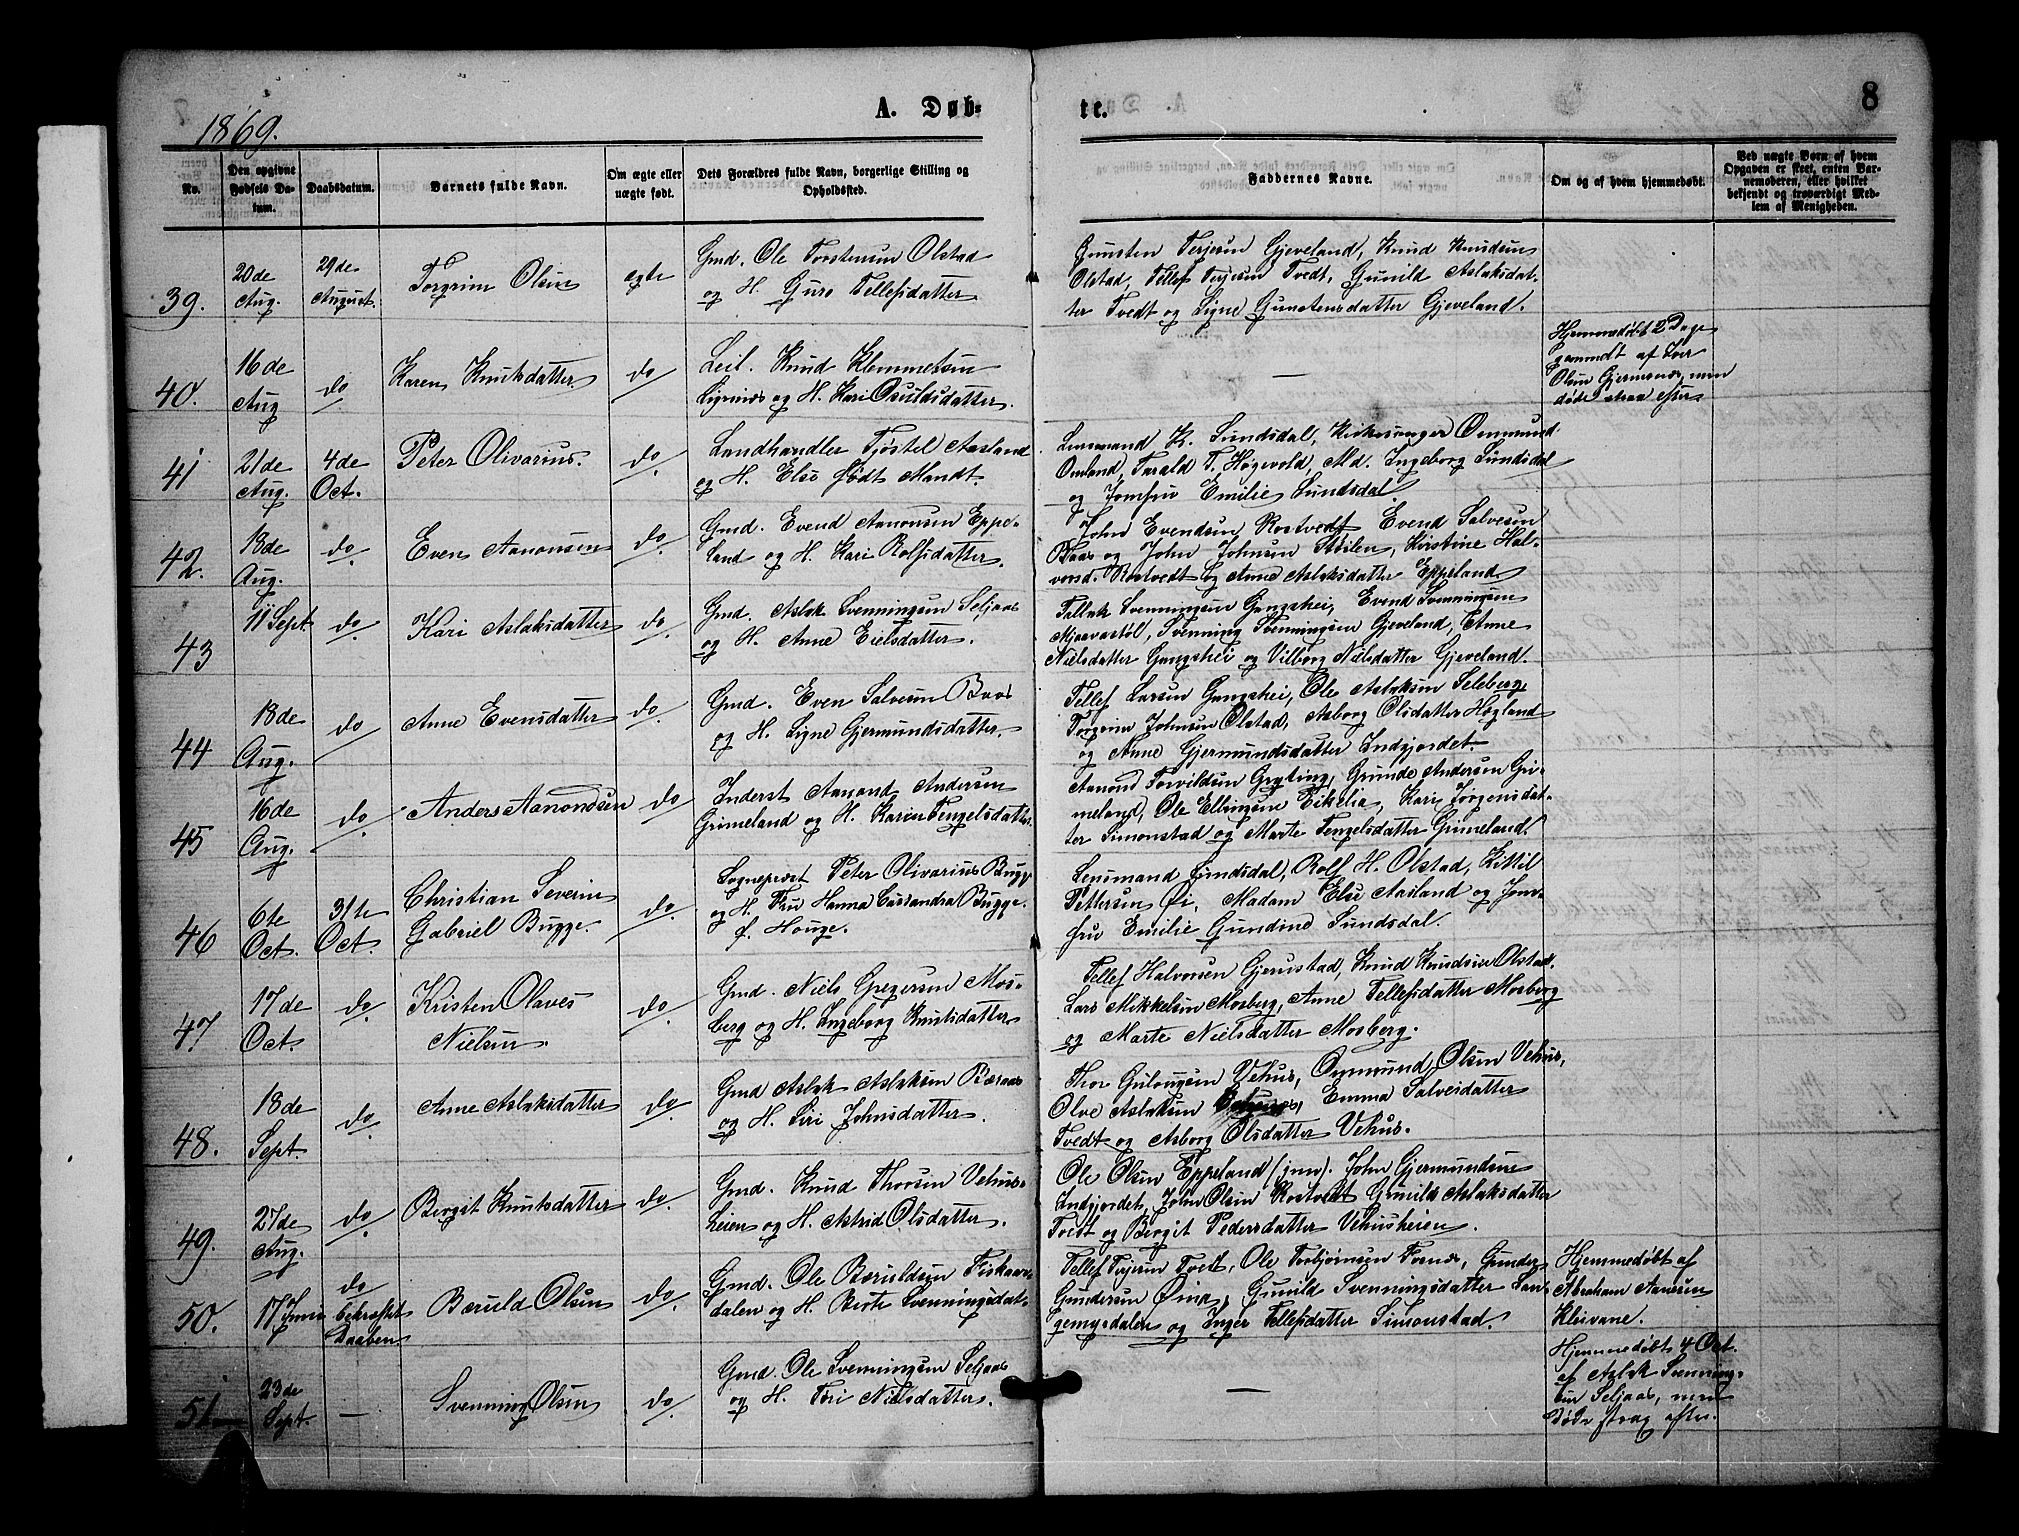 8
1869.
A. Døb-
te.
No.
Den opgivne Fødsels Da-tum.
Daabsdatum.
Barnets fulde Navn.
Om ægte eller uægte født.
Dets Forældres fulde Navn, borgerlige Stilling og Opholdssted.
Faddernes Navne.
Om og af hvem hjemmedøbt.
Ved uægte Børn af hvem Opgaven er skeet, enten Bar-nemoderen, eller hvilket bekjendt og troværdigt Med-lem af Menigheden.
39.
20de Aug.
29de August.
Torgrim Olsen
ægte
Gmd. Ole Torstensen Olstad
og H. Guro Tellefsdatter
Gunsten Terjesen Gjeveland, Knud Knudsen
Olstad, Tellef Terjesen Tvedt, Gunild Aslaksdat-
ter Tvedt og Signe Gunstensdatter Gjeveland.
40.
16de Aug
do
Karen Knutsdatter
do
Leil. Knud Klemmetsen
og H. Kari Osuldsdatter.
—
Hjemmedøbt 2 Dage
gammelt af Iver
Olsen men
døde strax efter
41
21de Aug.
4de Oct.
Peter Olivarius.
do
Landhandler Tjøstel Aasland
og H. Else født Mandt
Lensmand K. Sundsdal, Kirkesanger Ommund
Omland, Tarald T. Høgevold, Md. Ingeborg Sundsdal
og Jomfru Emilie Sundsdal.
42.
13de Aug.
do
Even Aanonsen
do
Gmd. Evend Aanonsen Eppe-
land og H. Kari Rolfsdatter.
John Evendsen Rostvedt Evend Salvesen
Baas og John Johnsen Stølen, Kirstine Hal-
vorsd. Rostvedt og Anne Aslaksdatter Eppeland
43
11 Sept.
do
Kari Aslaksdatter
do
Gmd. Aslak Svenningsen Seljaas
og H. Anne Eielsdatter.
Tellak Svenningsen Gangshei, Evend Svenningsen
Mjaavastøl, Svenning Svenningsen Gjeveland, Anne
Nielsdatter Gangshei og Vilborg Nielsdatter Gjeveland.
44
18de Aug.
do
Anne Evensdatter
do
Gmd. Even Salvesen Baas
og H. Signe Gjermundsdatter.
Tellef Larsen Gangshei, Ole Aslaksen Seleberg
Torgrim Johnsen Olstad, Asborg Olsdatter Høgland
og Anne Gjermundsdatter Indgjordet.
45
16de Aug.
do
Anders Aanondsen
do
Inderst Aanond Andersen
Grimeland og H. Karen Tengelsdatter.
Aanond Torvildsen Gryting, Grunde Andersen Gri-
meland, Ole Ellingsen Eikelia, Kari Jørgensdat-
ter Simonstad og Marte Tengelsdatter Grimeland.
46
6te Oct.
31te Oct.
Christian Severin
Gabriel Bugge.
do
Sogneprest Peter Olivarius Bugge
og H. Fru Hanna Cassandra Bugge.
f. Houge.
Lensmand Sundsdal, Rolf H. Olstad, Kittil
Pettersen Øi, Madam Else Aasland og Jom-
fru Emilie Gundine Sundsdal.
47
17de Oct.
do
Kristen Olaves
Nielsen
do
Gmd. Niels Gregersen Mos-
berg og H. Ingeborg Knutsdatter
Tellef Halvorsen Gjerustad, Knud Knudsen Olstad.
Lars Mikkelsen Mosberg, Anne Tellefsdatter Mosberg
og Marte Nielsdatter Mosberg.
48.
18de Sept.
do
Anne Aslaksdatter
do
Gmd Aslak Aslaksen Baraas
og H. Siri Johnsdatter.
Thor Vehus, Ommund Olsen Vehus,
Olve Aslaksen Emma Salvesdatter
Tvedt og Asborg Olsdatter Vehus.
49.
27de Aug.
do
Bergit Knutsdatter
do
Gmd. Knud Thorsen Vehus-
heien og H. Astrid Olsdatter.
Ole Olsen Eppeland (jnr). John Gjermundsen
Indgjordet, John Olsen Rostvedt Gunild Aslaksdatter
Tvedt og Bergit Pedersdatter Vehusheien.
50.
17 Juni
do bekræftet Daaben
Baruld Olsen
do
Gmd. Ole Baruldsen Fiskaar-
dalen og H. Berte Svenningsdat-
Tellef Terjesen Tvedt, Ole Torbjørnsen Fosnæs, Gunder
Gundersen Øina, Gunild Svenningsdatter San-
gemyrdalen og Inger Tellefsdatter Simonstad.
Hjemmedøbt af
Abraham Aanesen
Kleivane.
51
23de Sept.
—
Svenning Olsen
do
Gmd. Ole Svenningsen Seljaas
og H. Tori Nielsdatter.
—
Hjemmedøbt 4 Oct.
af Aslak Svenning-
sen Seljaas, men
døde strax efter.